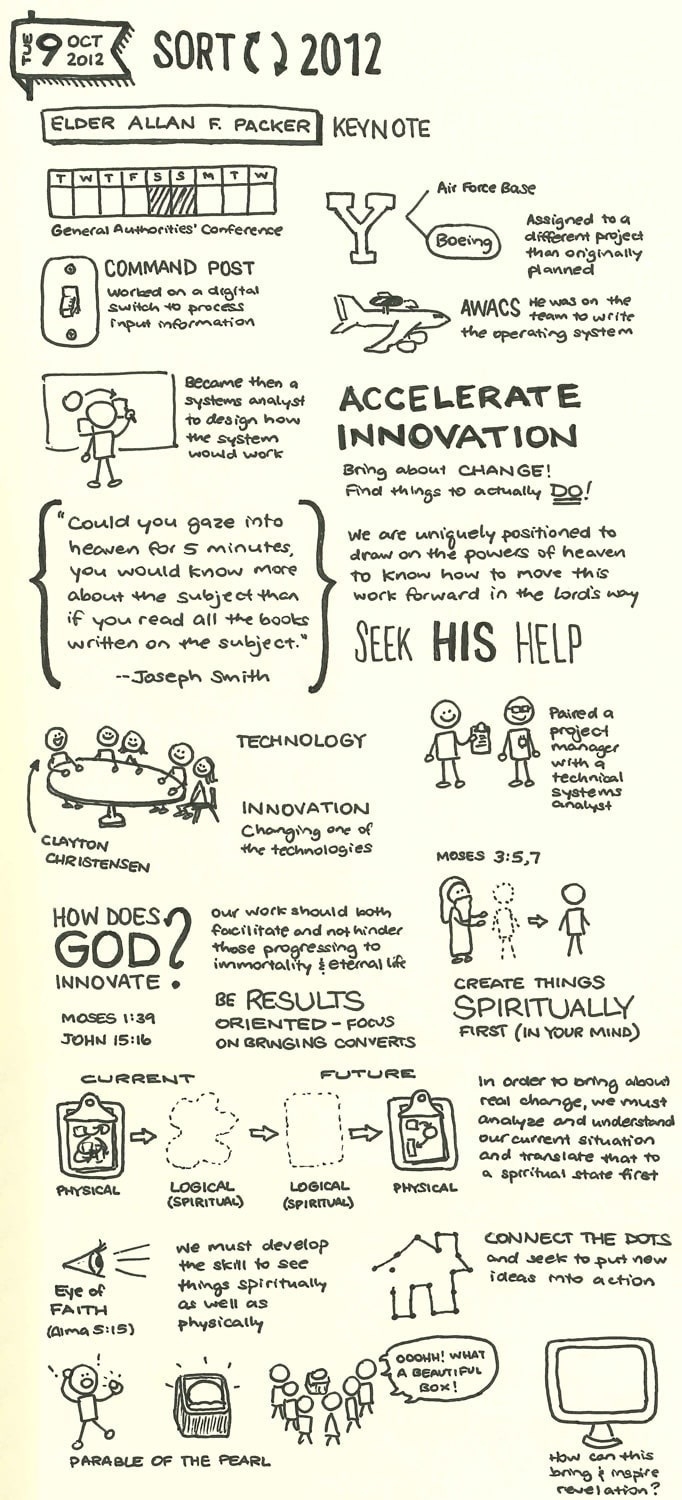 TUE 9 OCT 2012
SORT 2012
ELDER ALLAN F. PACKER KEYNOTE
T W T F S S M T W
General Authorities' Conference
Y
Air Force Base
Boeing
Assigned to a
different project
than originally
planned
COMMAND POST
Worked on a digital
switch to process
input information
AWACS He was on the
team to write
the operating system
Became then a
systems analyst
to design how
the system
would work
ACCELERATE
INNOVATION
Bring about CHANGE!
Find things to actually DO!
"Could you gaze into
heaven for 5 minutes,
you would know more
about the subject than
if you read all the books
written on the subject."
--Joseph Smith
We are uniquely positioned to
draw on the powers of heaven
to know how to move this
work forward in the Lord's way
SEEK HIS HELP
CLAYTON
CHRISTENSEN
TECHNOLOGY
INNOVATION
Changing one of
the technologies
Paired a
project
manager
with a
technical
systems
analyst
MOSES 3:5,7
HOW DOES
GOD
INNOVATE?
MOSES 1:39
JOHN 15:16
Our work should both
facilitate and not hinder
those progressing to
immortality & eternal life
BE RESULTS
ORIENTED - FOCUS
ON BRINGING CONVERTS
CREATE THINGS
SPIRITUALLY
FIRST (IN YOUR MIND)
CURRENT
FUTURE
PHYSICAL
LOGICAL
(SPIRITUAL)
LOGICAL
(SPIRITUAL)
PHYSICAL
In order to bring about
real change, we must
analyze and understand
our current situation
and translate that to
a spiritual state first
Eye of
FAITH
(Alma 5:15)
We must develop
the skill to see
things spiritually
as well as
physically
CONNECT THE DOTS
and seek to put new
ideas into action
OOOHH! WHAT
A BEAUTIFUL
BOX!
PARABLE OF THE PEARL
How can this
bring & inspire
revelation?